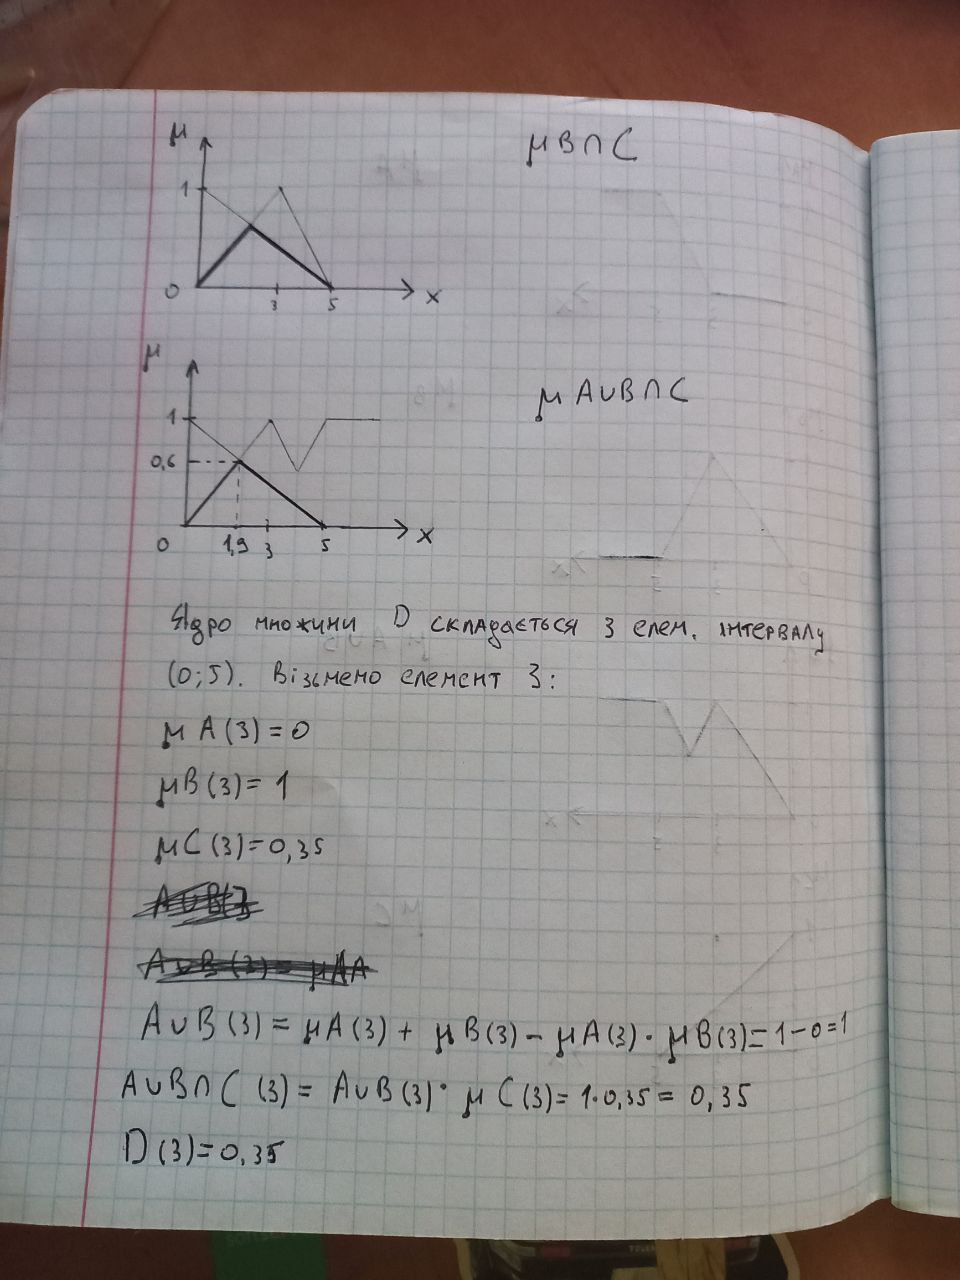 μ
μ B∩C
1
0
3
5
x
μ
μ A∪B∩C
1
0,6
0
1,9
3
5
x
Ядро множини D складається з елем. інтервалу
(0;5). Візьмемо елемент 3:
μ A(3) = 0
μB(3) = 1
μC(3) = 0,35
A∪B(3) = μA(3) + μB(3) - μA(3) · μB(3) = 1-0=1
A∪B∩C (3) = A∪B(3) · μC(3) = 1·0,35 = 0,35
D(3)=0,35